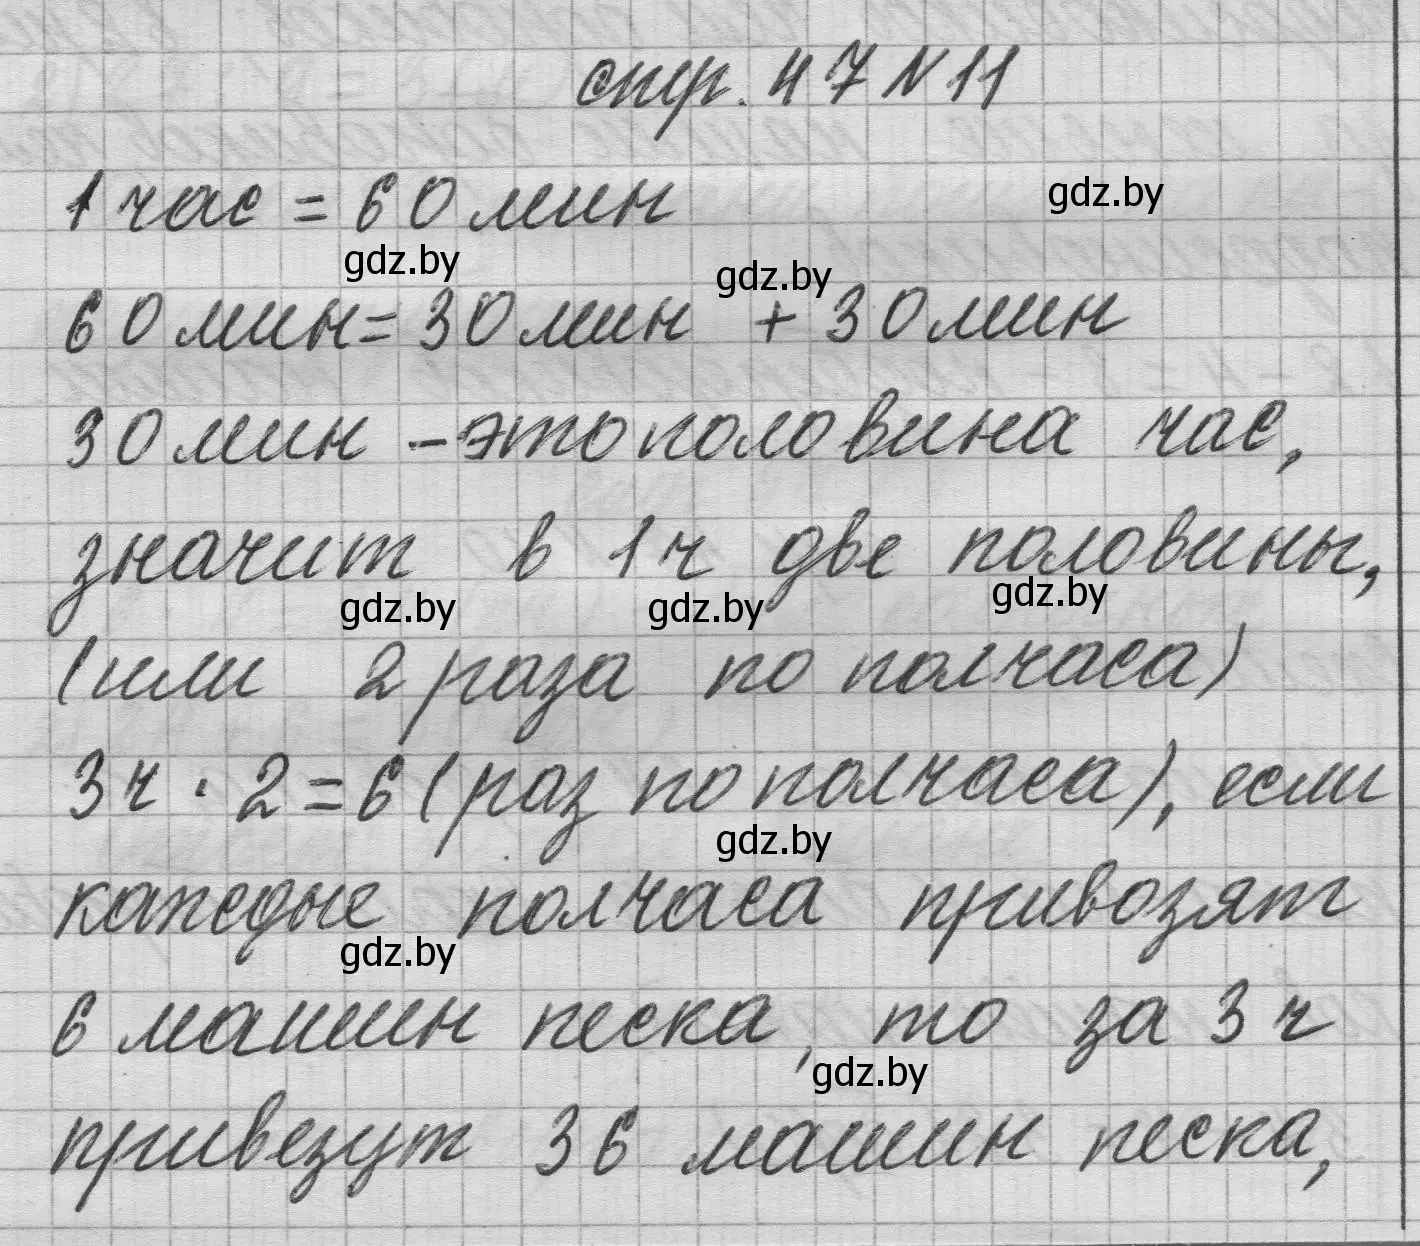 стр. 47 N 11
1 час = 60 мин
gdz.by
gdz.by
gdz.by
60 мин = 30 мин + 30 мин
30 мин - это половина час,
значит в 1 ч две половины,
gdz.by
gdz.by
gdz.by
(или 2 раза по полчаса)
3 ч · 2 = 6 (раз по полчаса), если
gdz.by
каждые полчаса привозят
gdz.by
6 машин песка, то за 3 ч
gdz.by
привезут 36 машин песка,